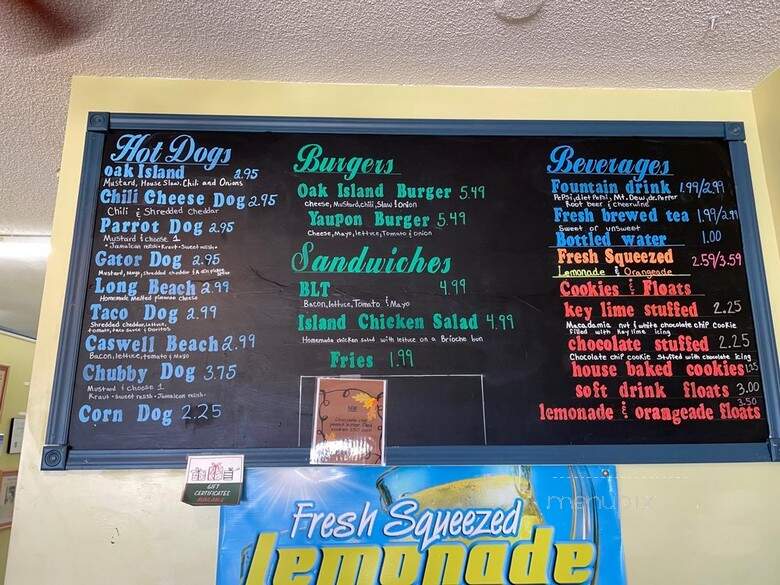 Hot Dogs
oak Island 2.95
Mustard, House Slaw, Chili and Onions
Chili Cheese Dog 2.95
Chili & Shredded Cheddar
Parrot Dog 2.95
Mustard & choose 1
• Jamaican relish • Kraut • Sweet relish •
Gator Dog 2.95
Mustard, Mayo, shredded cheddar &
Long Beach 2.99
Homemade Melted pimento cheese
Taco Dog 2.99
Shredded cheddar, lettuce,
tomato, taco sauce & Doritos
Caswell Beach 2.99
Bacon, lettuce, tomato & Mayo
Chubby Dog 3.75
Mustard & choose 1
Kraut • sweet relish • Jamaican relish •
Corn Dog 2.25
Burgers
Oak Island Burger 5.49
Cheese, Mustard, chili, Slaw & Onion
Yaupon Burger 5.49
Cheese, Mayo, lettuce, Tomato & Onion
Sandwiches
BLT 4.99
Bacon, lettuce, Tomato & Mayo
Island Chicken Salad 4.99
Homemade chicken salad with lettuce on a Brioche bun
Fries 1.99
Beverages
Fountain drink 1.99/2.99
Pepsi, diet Pepsi, Mt. Dew, dr. Perper
Root beer & cheerwine
Fresh brewed tea 1.99/2.99
Sweet or unsweet
Bottled water 1.00
Fresh Squeezed 2.59/3.59
Lemonade & Orangeade
Cookies & Floats
key lime stuffed 2.25
Macadamia nut & white chocolate chip cookie
filled with Key lime icing
chocolate stuffed 2.25
Chocolate chip cookie stuffed with chocolate icing
house baked cookies 1.25
soft drink floats 3.00
3.50
lemonade & orangeade floats
GIFT
CERTIFICATES
AVAILABLE
Fresh Squeezed
lemonade
menupix